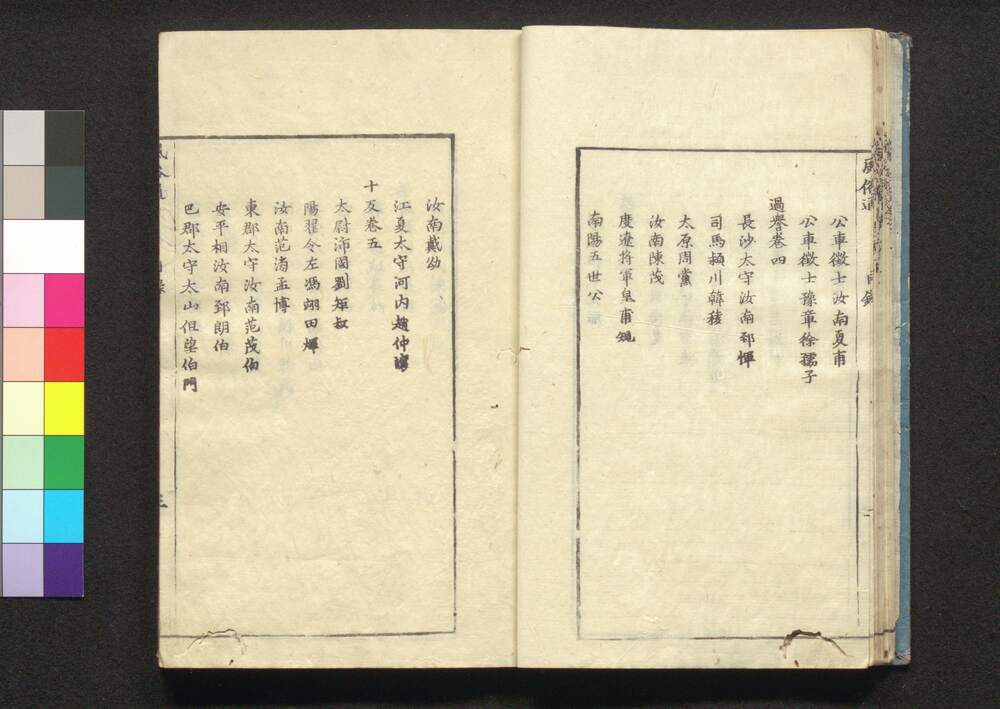 風俗通
目錄
公車徵士汝南夏甫
公車徵士豫章徐孺子
過譽卷四
長沙太守汝南郅惲
司馬潁川韓稜
太原周黨
汝南陳茂
度遼將軍皇甫規
南陽五世公
汝南戴幼
江夏太守河内趙仲讓
十反卷五
太尉沛國劉矩叔
陽翟令左馮翊田煇
汝南范滂孟博
東郡太守汝南范茂伯
安平相汝南郅朗伯
巴郡太守太山但望伯門
三